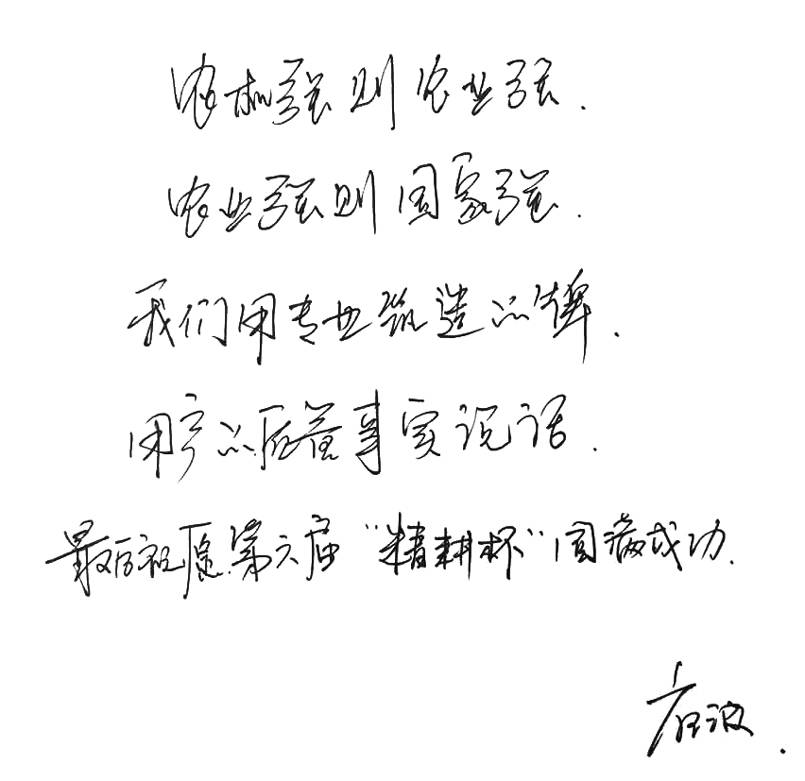 农机强则农业强.
农业强则国家强.
我们用专业筑造品牌.
用产品质量事实说话.
最后祝愿第六届“精耕杯”圆满成功.
波.